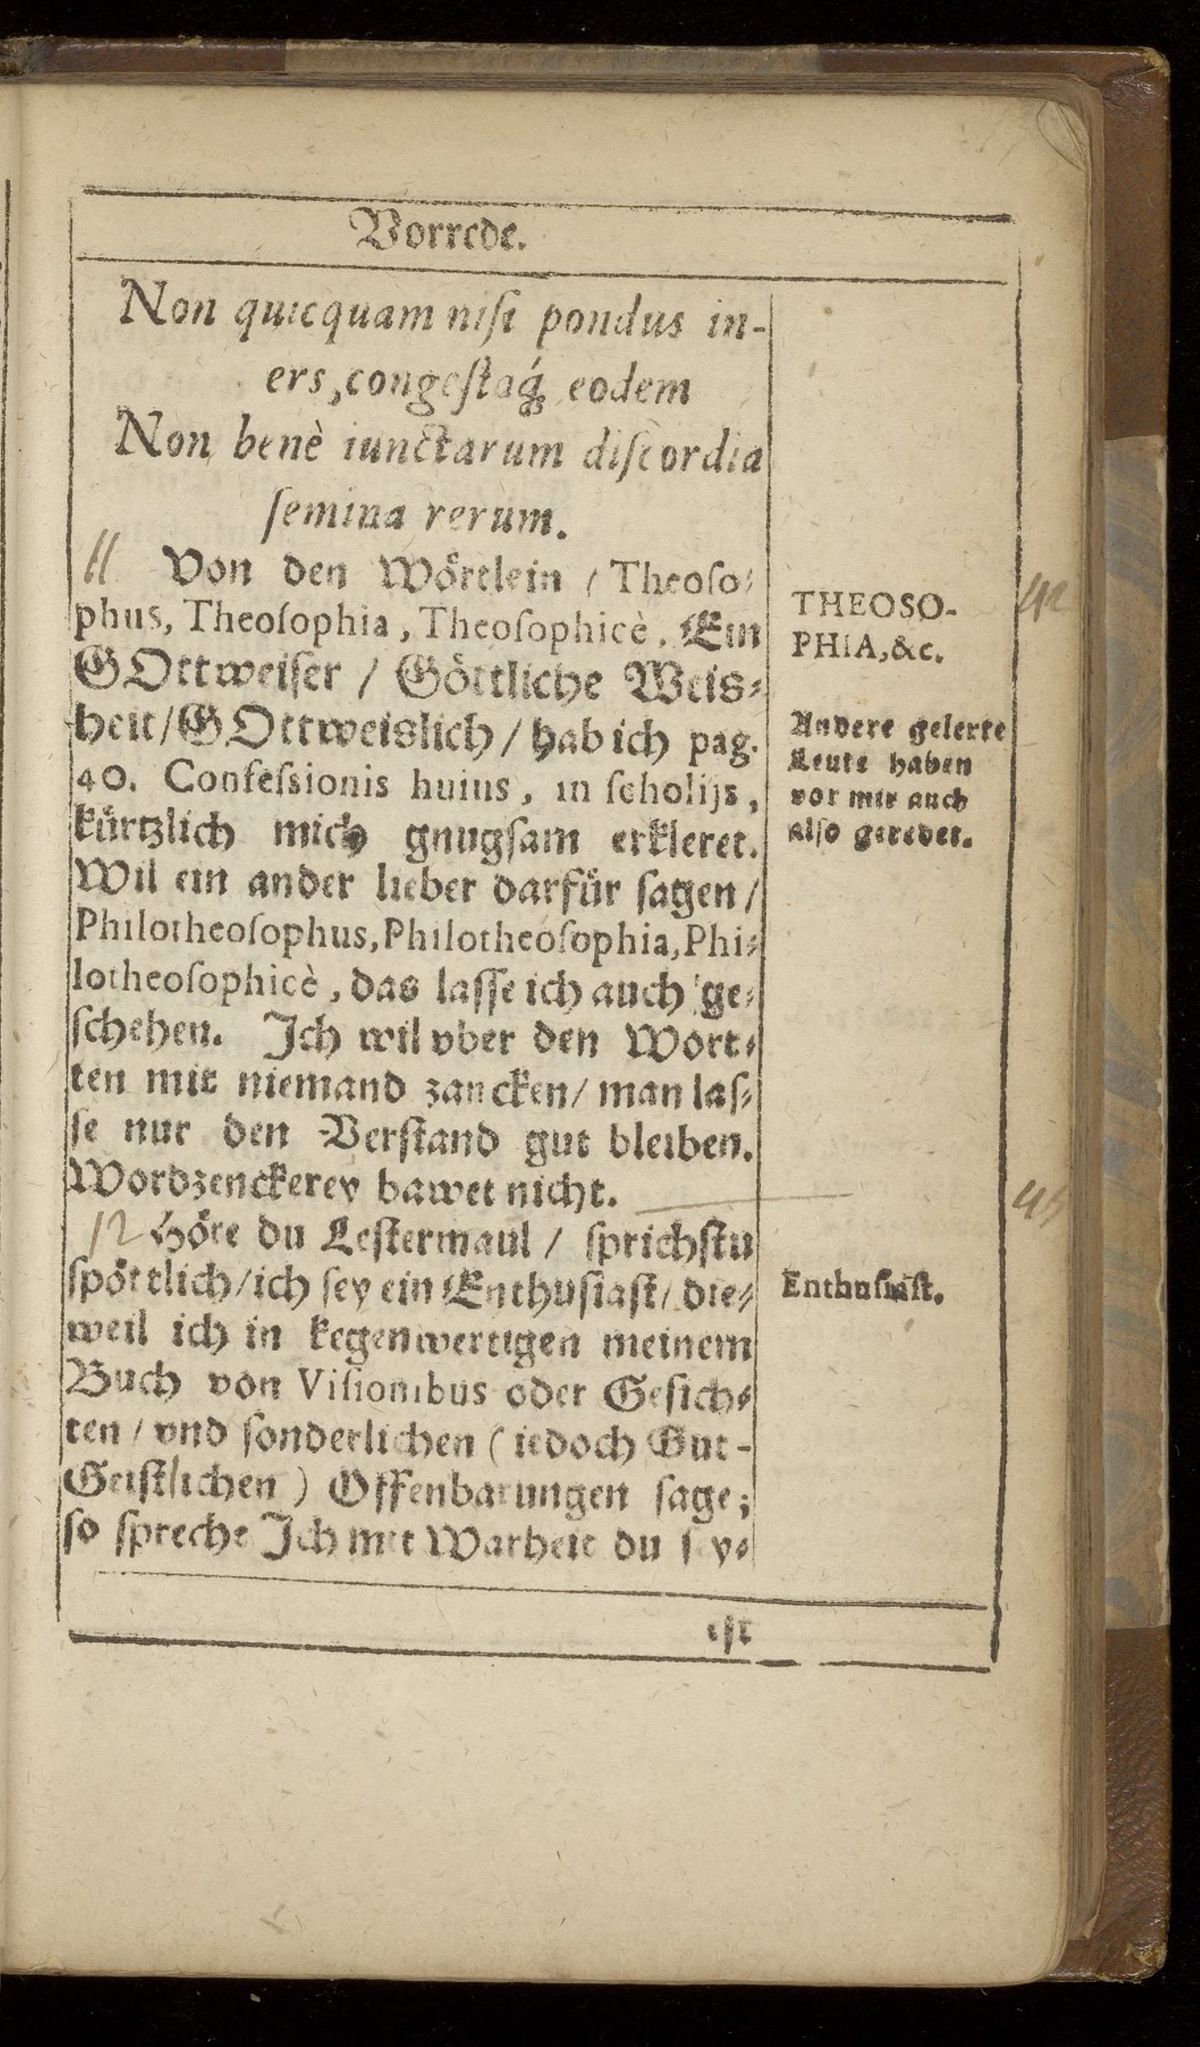 Vorrede.
Non quicquam nisi pondus in-
ers, congestaq́ꝫ eodem
Non benè iunctarum discordia
semina rerum.
11 Von den Wörtlein / Theoso-
phus, Theosophia, Theosophicè. Ein
GOttweiser / Göttliche Weis-
heit / GOttweislich / hab ich pag.
40. Confessionis huius, in scholijs,
kürtzlich mich gnugsam erkleret.
Wil ein ander lieber darfür sagen /
Philotheosophus, Philotheosophia, Phi-
lotheosophicè, das lasse ich auch ge-
schehen. Ich wil vber den Wort-
ten mit niemand zancken / man las-
se nur den Verstand gut bleiben.
Wordzenckerey bawet nicht.
12 Höre du Lestermaul / sprichstu
spöttlich / ich sey ein Enthusiast / die-
weil ich in kegenwertigen meinem
Buch von Visionibus oder Gesich-
ten / vnd sonderlichen (iedoch Gut-
Geistlichen) Offenbarungen sage;
so spreche Ich mit Warheit du sey-
est
THEOSO-
PHIA, &c.
42
Andere gelerte
Leute haben
vor mir auch
also geredet.
Enthusiast.